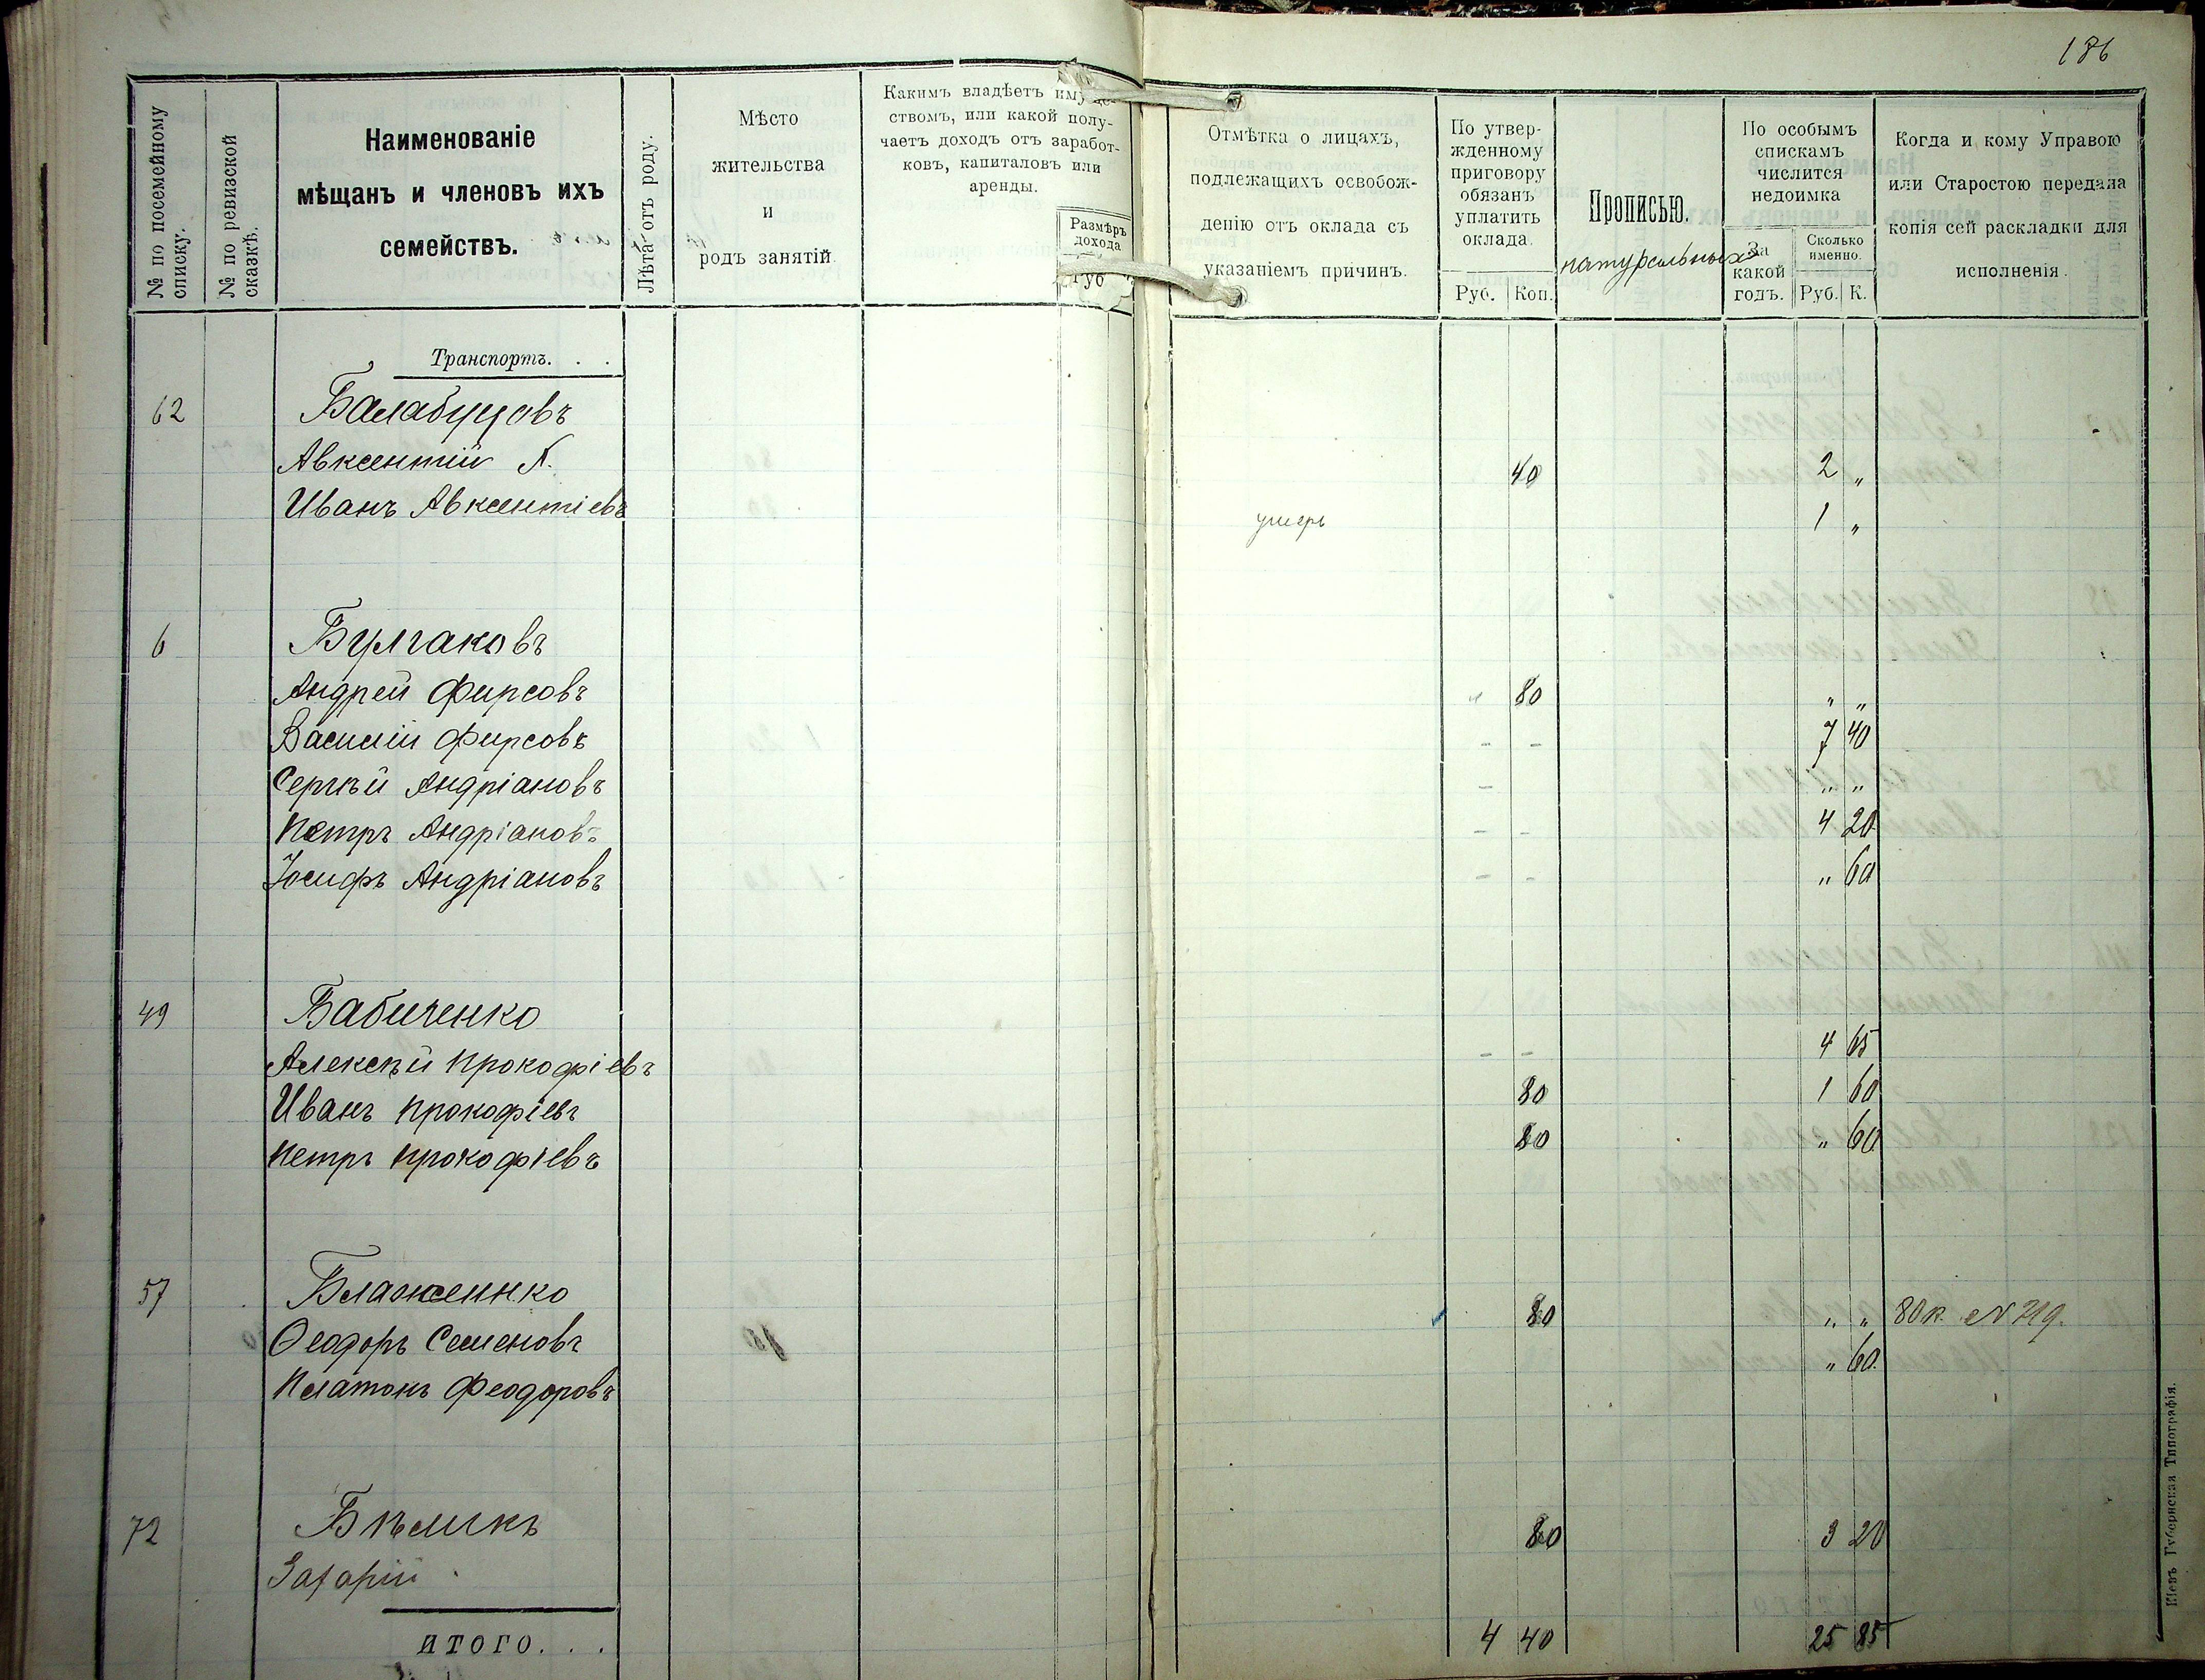 186
№ по посемейному списку.
№ по ревизской сказкѣ.
Наименованіе
мѣщанъ и членовъ ихъ
семействъ.
Лѣта отъ роду.
Мѣсто
жительства
и
родъ занятій.
Какимъ владѣетъ
ствомъ, или какой полу-
чаетъ доходъ отъ заработ-
ковъ, капиталовъ или
аренды.
Размѣръ
дохода
Руб
Отмѣтка о лицахъ,
подлежащихъ освобож-
денію отъ оклада съ
указаніемъ причинъ.
По утвер-
жденному
приговору
обязанъ
уплатить
оклада.
Руб. Коп.
Прописью.
натуральныхъ
По особымъ
спискамъ
числится
недоимка
За
какой
годъ.
Сколько
именно.
Руб. К.
Когда и кому Управою
или Старостою передана
копія сей раскладки для
исполненія.
Транспортъ. . .
62 Балабуцовъ
Авксентій А. 40 2 „
Иванъ Авксентіевъ умеръ 1 „
6 Булгаковъ
Андрей Фирсовъ „ 80 „ „
Василій Фирсовъ - - 7 40
Сергѣй Андріановъ - „ „
Петръ Андріановъ - - 4 20
Іосифъ Андріановъ - - „ 60
49 Бабиченко
Алексѣй Прокофіевъ - - 4 65
Иванъ Прокофіевъ 80 1 60
Петръ Прокофіевъ 80 „ 60
57 Блаженко
Феодоръ Семеновъ 80 „ „ 80 к. № 219.
Платонъ Феодоровъ „ 60.
72 Бѣликъ
Захарій 80 3 20
ИТОГО. . . 4 40 25 85
Кіевъ Губернская Типографія.